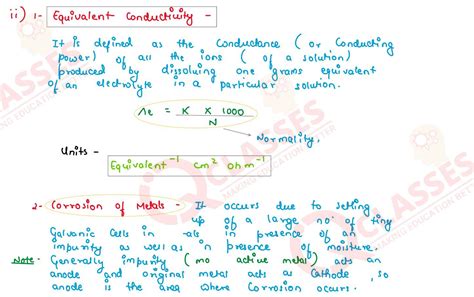 ii) 1- Equivalent Conductivity -
It is defined as the conductance ( or Conducting
power) of all the ions ( of a solution)
produced by dissolving one grams equivalent
of an electrolyte in a particular solution.
Λe = K X 1000 / N
Normality.
Units - Equivalent⁻¹ cm² ohm⁻¹
2- Corrosion of Metals - It occurs due to setting
up of a large no. of tiny
Galvanic Cells in -ate in presence of an
impurity as well as in presence of moisture.
Note - Generally impurity ( mo active metal) acts an
anode and original metal acts as Cathode, so
anode is the area where Corrosion occurs.
CLASSES
MAKING EDUCATION BETTER